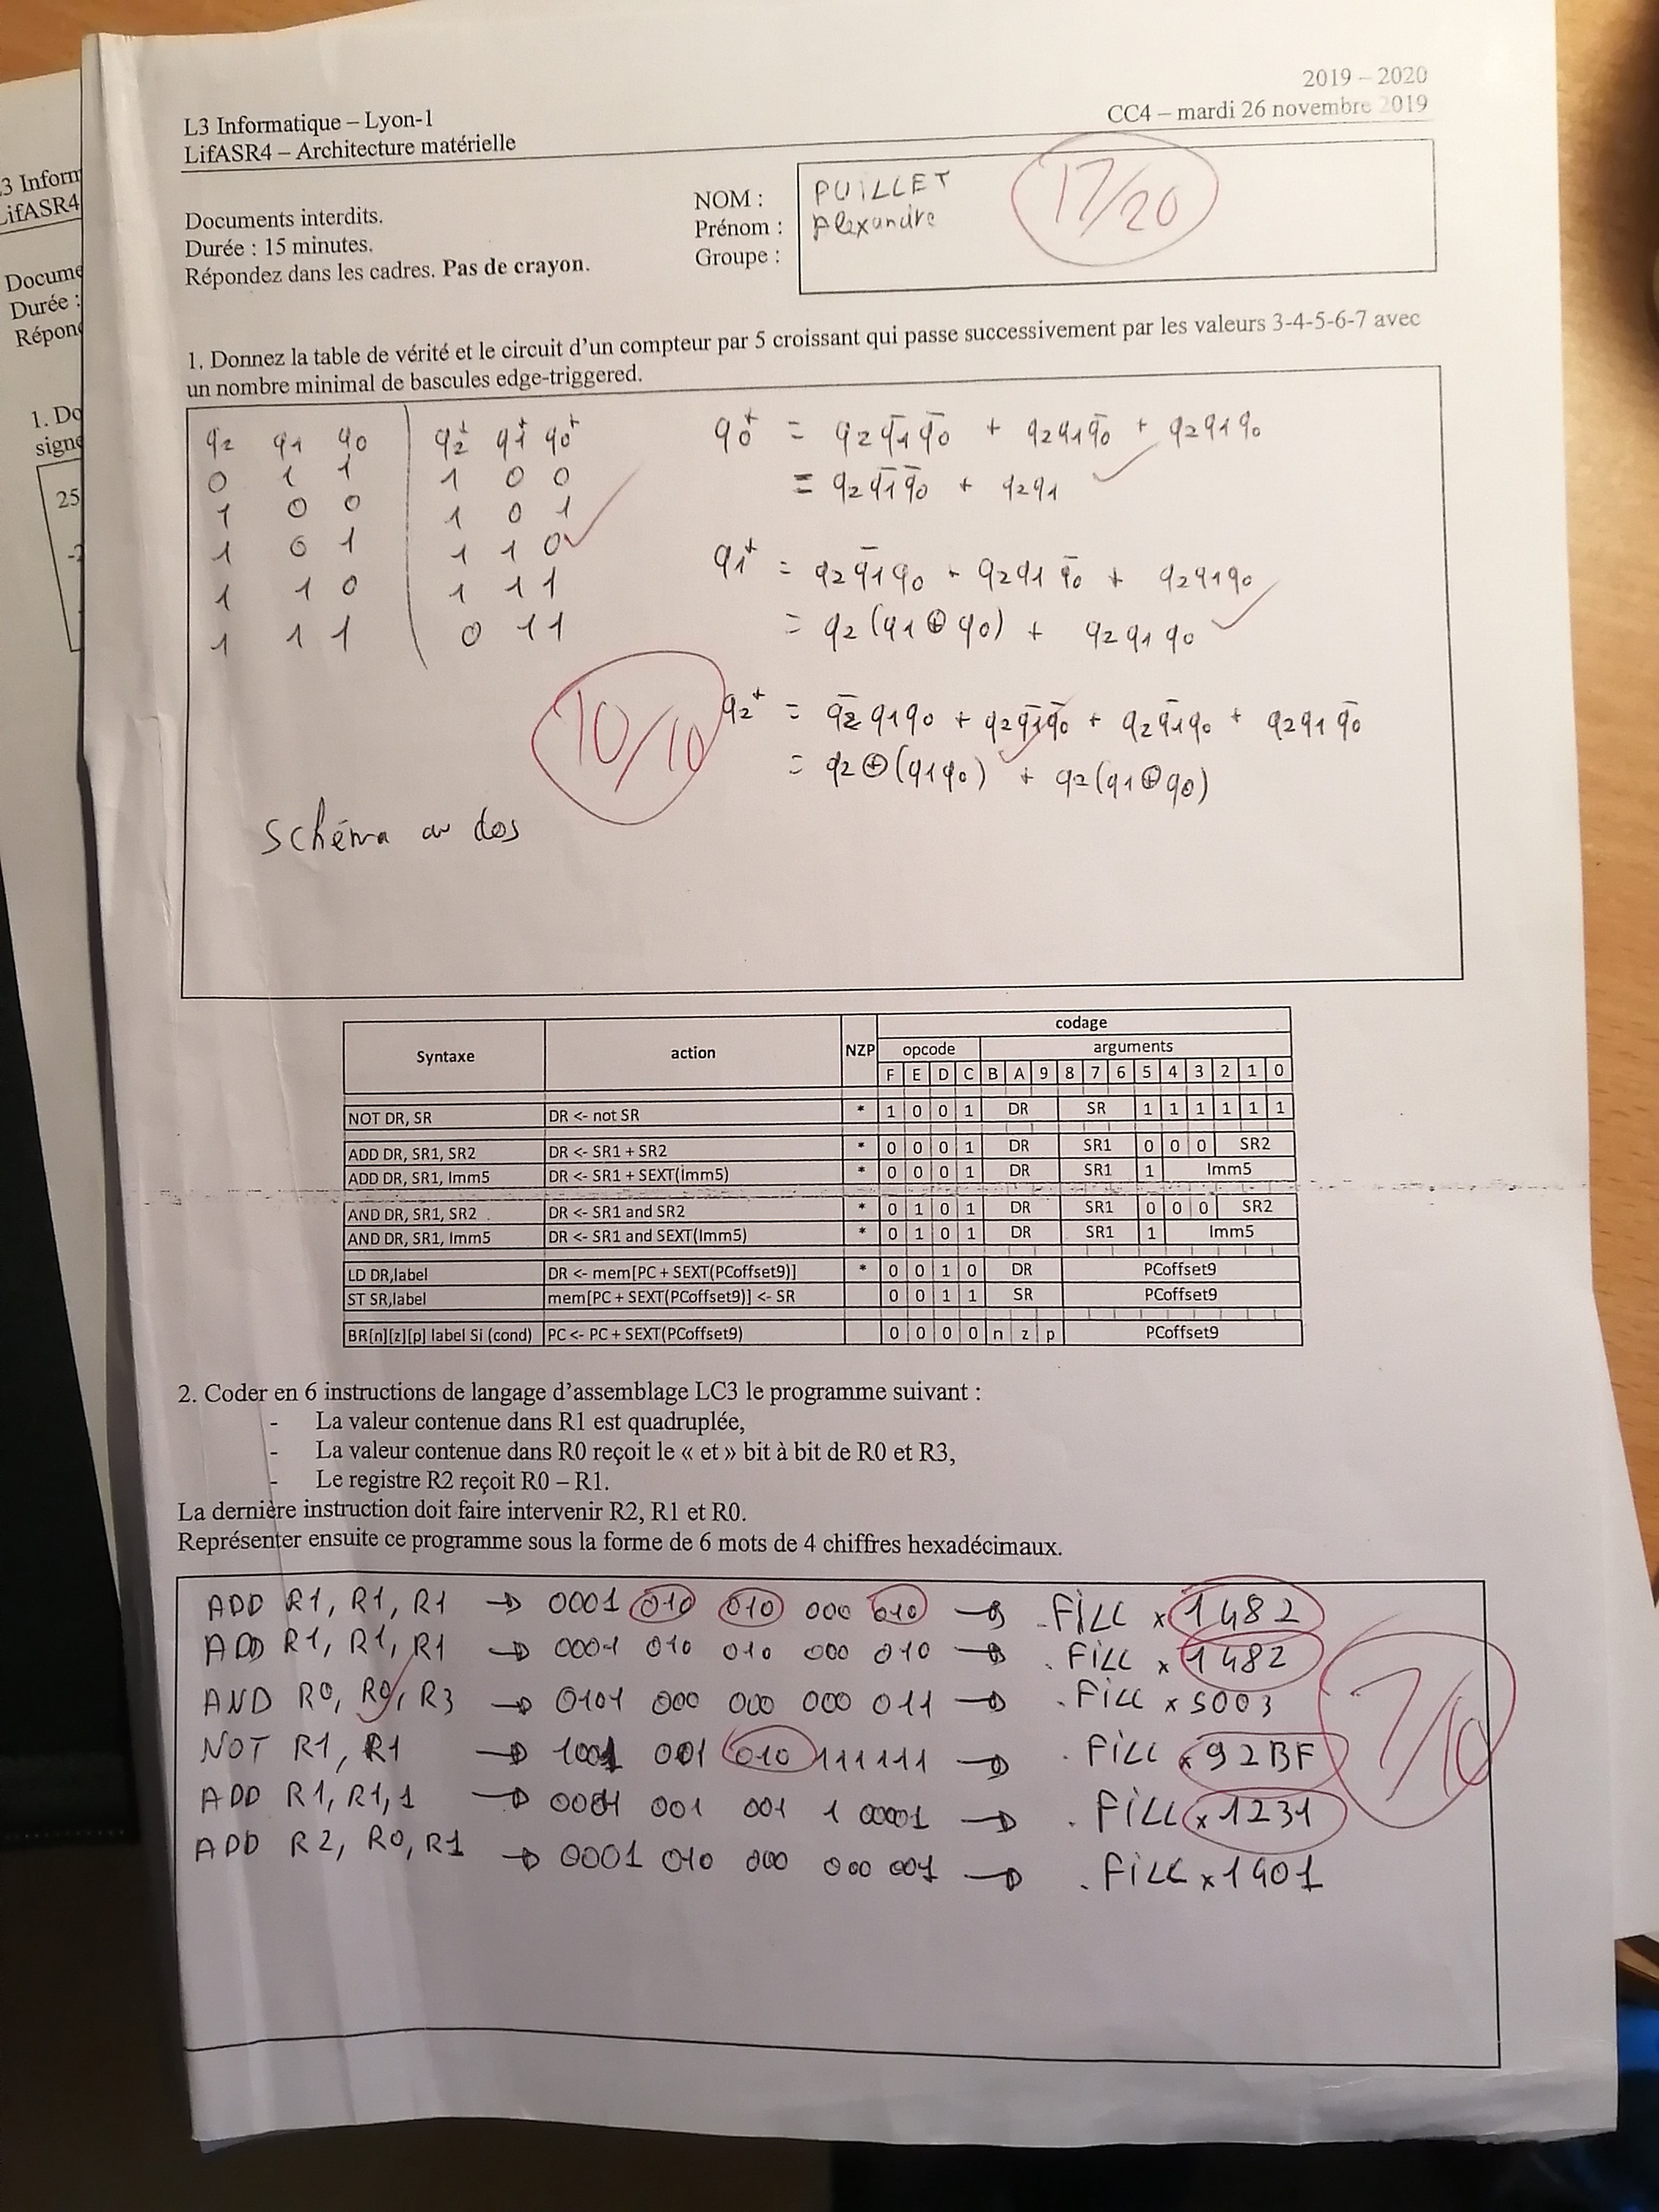 2019 – 2020
L3 Informatique – Lyon-1
CC4 – mardi 26 novembre 2019
LifASR4 – Architecture matérielle
Documents interdits.
Durée : 15 minutes.
Répondez dans les cadres. Pas de crayon.
NOM : PUILLET
Prénom : Alexandre
Groupe :
17/20
1. Donnez la table de vérité et le circuit d'un compteur par 5 croissant qui passe successivement par les valeurs 3-4-5-6-7 avec
un nombre minimal de bascules edge-triggered.
q2 q1 q0 | q2⁺ q1⁺ q0⁺
0 1 1 | 1 0 0
1 0 0 | 1 0 1
1 0 1 | 1 1 0
1 1 0 | 1 1 1
1 1 1 | 0 1 1
q0⁺ = q2 q̄1 q̄0 + q2 q1 q̄0 + q2 q1 q0
= q2 q̄1 q̄0 + q2 q1
q1⁺ = q2 q̄1 q0 + q2 q1 q̄0 + q2 q1 q0
= q2 (q1 ⊕ q0) + q2 q1 q0
q2⁺ = q̄2 q1 q0 + q2 q̄1 q̄0 + q2 q̄1 q0 + q2 q1 q̄0
= q2 ⊕ (q1 q0) + q2 (q1 ⊕ q0)
10/10
Schéma au dos
Syntaxe action NZP codage
opcode arguments
F E D C B A 9 8 7 6 5 4 3 2 1 0
NOT DR, SR DR <- not SR * 1 0 0 1 DR SR 1 1 1 1 1 1
ADD DR, SR1, SR2 DR <- SR1 + SR2 * 0 0 0 1 DR SR1 0 0 0 SR2
ADD DR, SR1, Imm5 DR <- SR1 + SEXT(Imm5) * 0 0 0 1 DR SR1 1 Imm5
AND DR, SR1, SR2 DR <- SR1 and SR2 * 0 1 0 1 DR SR1 0 0 0 SR2
AND DR, SR1, Imm5 DR <- SR1 and SEXT(Imm5) * 0 1 0 1 DR SR1 1 Imm5
LD DR,label DR <- mem[PC + SEXT(PCoffset9)] * 0 0 1 0 DR PCoffset9
ST SR,label mem[PC + SEXT(PCoffset9)] <- SR 0 0 1 1 SR PCoffset9
BR[n][z][p] label Si (cond) PC <- PC + SEXT(PCoffset9) 0 0 0 0 n z p PCoffset9
2. Coder en 6 instructions de langage d'assemblage LC3 le programme suivant :
- La valeur contenue dans R1 est quadruplée,
- La valeur contenue dans R0 reçoit le « et » bit à bit de R0 et R3,
- Le registre R2 reçoit R0 – R1.
La dernière instruction doit faire intervenir R2, R1 et R0.
Représenter ensuite ce programme sous la forme de 6 mots de 4 chiffres hexadécimaux.
ADD R1, R1, R1 → 0001 010 010 000 010 → .FILL x1482
ADD R1, R1, R1 → 0001 010 010 000 010 → .FILL x1482
AND R0, R0, R3 → 0101 000 000 000 011 → .FILL x5003
NOT R1, R1 → 1001 001 010 111111 → .FILL x92BF
ADD R1, R1, 1 → 0001 001 001 1 00001 → .FILL x1231
ADD R2, R0, R1 → 0001 010 000 000 001 → .FILL x1401
7/10
3 Inform
LifASR4
Docume
Durée :
Répon
1. Do
signe
25